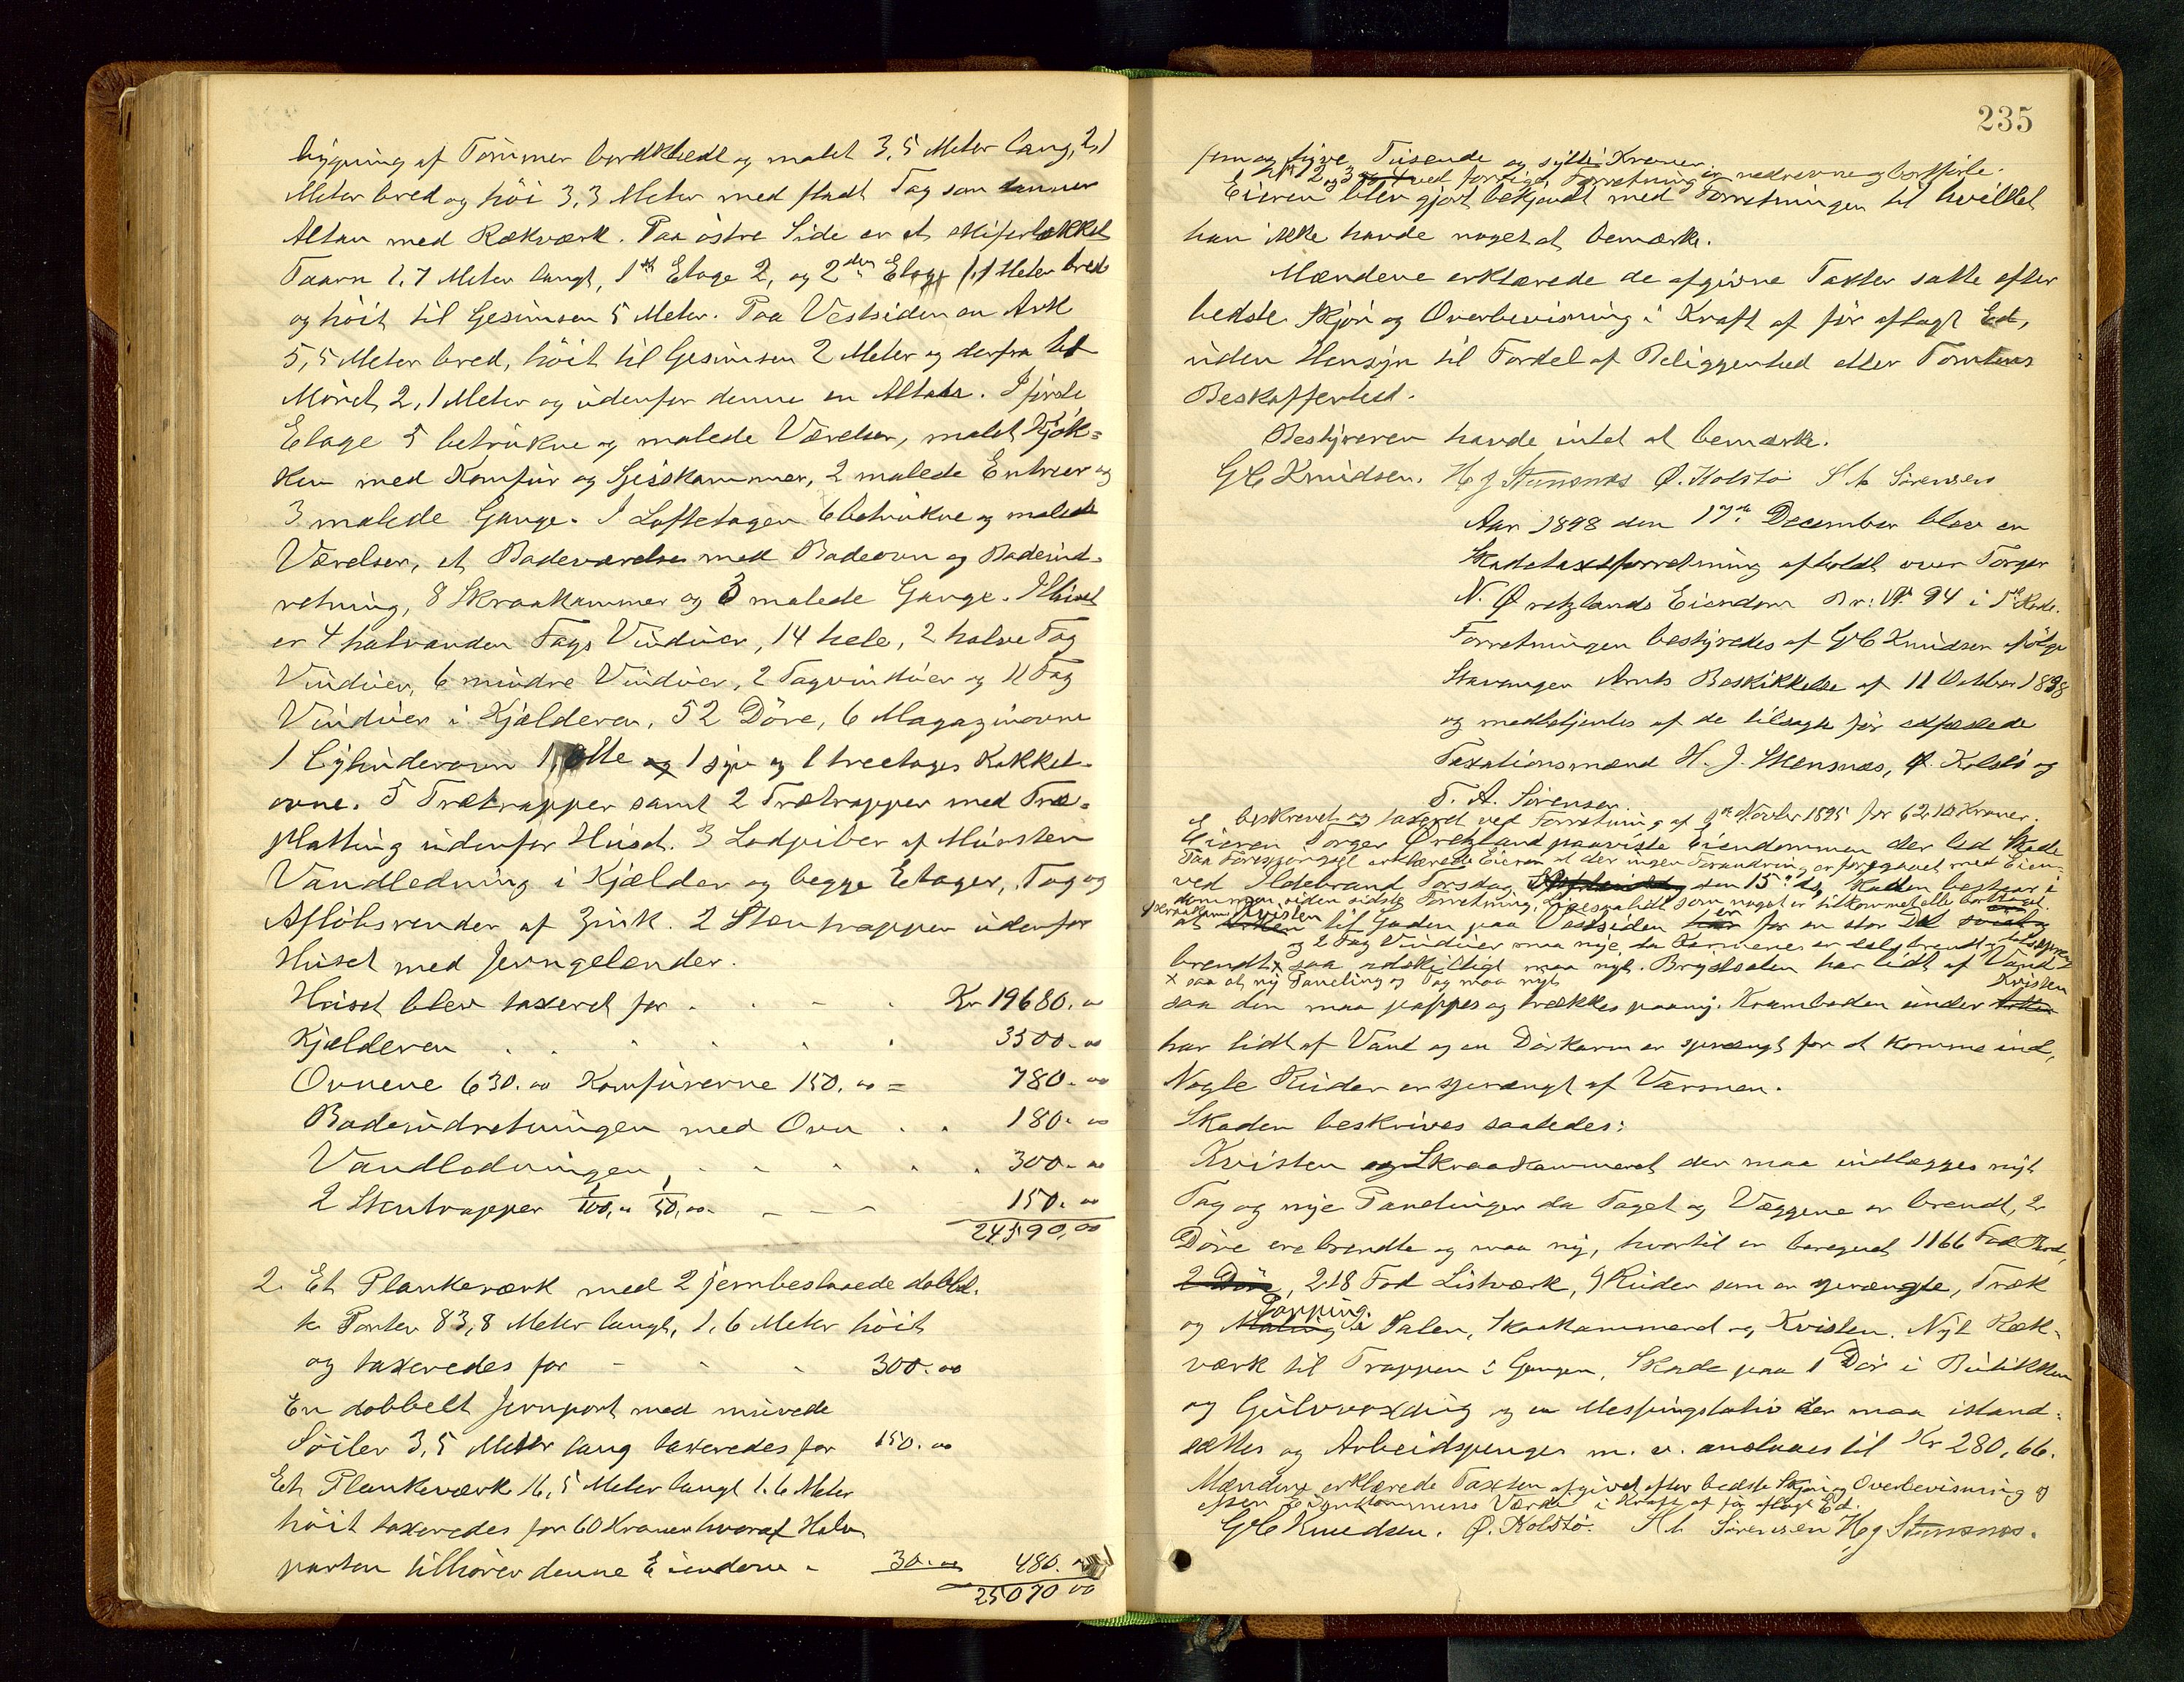 bygning af Tømmer bordklædt og malet 3,5 Meter lang, 2,1
Meter bred og høi 3,3 Meter med fladt Tag som danner
Altan med Rækværk. Paa østre Side er et skifertækket
Taarn 1,7 Meter langt, 1ste Etage 2, og 2den Etage 1,1 Meter bred
og høit til Gesimsen 5 Meter. Paa Vestsiden en Ark
5,5 Meter bred, høit til Gesimsen 2 Meter og derfra til
Mønet 2,1 Meter og udenfor denne en Altan. I første
Etage 5 betrukne og malede Værelser, malet Kjøk-
ken med Komfur og Spisskammer, 2 malede Entreer og
3 malede Gange. I Loftetagen 6 betrukne og malede
Værelser, et Badeværelse med Badeovn og Badeind-
retning, 8 Skraakammer og 3 malede Gange. I Huset
er 4 halvanden Fags Vinduer, 14 hele, 2 halve Fag
Vinduer, 6 mindre Vinduer, 2 Tagvinduer og 11 Fag
Vinduer i Kjælderen, 52 Døre, 6 Magazinovne
1 Cylinderovn 1 otte og 1 syv og 1 treetages Kakkel-
ovne. 5 Trætrapper samt 2 Trætrapper med Træ-
platting udenfor Huset. 3 Lodpiber af Mursten
Vandledning i Kjælder og begge Etager, Tag og
Afløbsrender af Zink. 2 Stentrapper udenfor
Huset med Jerngelænder.
Huset blev taxeret for . . - . Kr 19680. 00
Kjælderen . . . . . . 3500. 00
Ovnene 630. 00 Komfurerne 150. 00 = 780. 00
Badeindretningen med Ovn . . 180. 00
Vandledningen, . . . . . 300. 00
2 Stentrapper 1/100, 00 1/50, 00. - - - 150. 00
24,590, 00
2. Et Plankeværk med 2 jernbeslaaede dobbel-
te Porter 83,8 Meter langt, 1,6 Meter høit
og taxeredes for - - - 300. 00
En dobbelt Jernport med murede
Søiler 3,5 Meter lang taxeredes for 150. 00
Et Plankeværk 16,5 Meter langt 1.6 Meter
høit taxeredes for 60 Kroner hvoraf Halv
parten tilhører denne Eiendom - 30. 00 480. 00
25070 00
235
fem og tyve Tusende og sytti Kroner.
No 2 og 3 og 4 ved forrige Forretning er nedrevne og bortførte.
Eieren blev gjort bekjendt med Forretningen til hvilket
han ikke havde noget at bemærke.
Mændene erklærede de afgivne Taxter satte efter
bedste Skjøn og Overbevisning i Kraft af før aflagt Ed,
uden Hensyn til Fordel af Beliggenhed eller Tomtens
Beskaffenhed.
Bestyreren havde intet at bemærke.
GC Knudsen. H J Stensnæs Ø. Kolstø T A Sørensen
Aar 1898 den 17de December blev en
Skadetaxtforretning afholdt over Torger
N. Øretzlands Eiendom Br: No 94 i 5te Rode.
Forretningen bestyredes af GC Knudsen ifølge
Stavanger Amts Beskikkelse af 11 Oktober 1898
og medbetjentes af de tilsagte før edfæstede
Taxationsmænd H. J. Stensnæs, Ø. Kolstø og
T. A. Sørensen.
beskrevet og taxeret ved Forretning af Novbr 1895 for 6210 Kroner.
Eieren Torger Øretzland paaviste Eiendommen der led Skade
Paa Forespørgsel erklærede Eieren at der ingen Forandring er foregaaet med Eien-
ved Ildebrand Torsdag den 15de ds, Skaden bestaar i
dommen siden sidste Forretning, Ligesaalidt som noget er tilkommet eller borttaget.
at Kvisten til Gaden paa Vestsiden er for en stor Del
og 2 Fag Vinduer maa nye da Karmene er
brendt x saa adskilligt maa nyt. Brystsalen har lidt af Vand
x saa at ny Paneling og Tag maa nyt Kvisten
saa den maa pappes og trækkes paany. Krambeden under
har lidt af Vand og en Dørkarm er sprængt for at komme ind,
Nogle Ruder er sprængt af Varmen.
Skaden beskrives saaledes:
Kvisten og Skraakammeret der maa indlægges nyt
Tag og nye Panelinger da Taget og Væggene er brendt, 2
Døre ere brendte og maa ny, hvortil er beregnet 1166 Fod Bord,
2 Dør, 218 Fod Listværk, 9 Ruder som er sprængte, Træk
Papping
og Maling i Salen, Skraakammeret og Kvisten. Nyt Ræk-
værk til Trappen i Gangen, Skade paa 1 Dør i Butikken
og Gulvvoxdug og en Messingstativ der maa istand-
sættes og Arbeidspenger m. v. ansloges til Kr 280,66.
Mændene erklærede Taxten afgivet efter bedste Skjøn og Overbevisning og
Eiendommens Værdi i Kraft af før aflagt Ed.
GC Knudsen. Ø. Kolstø. T A Sørensen H J Stensnæs.